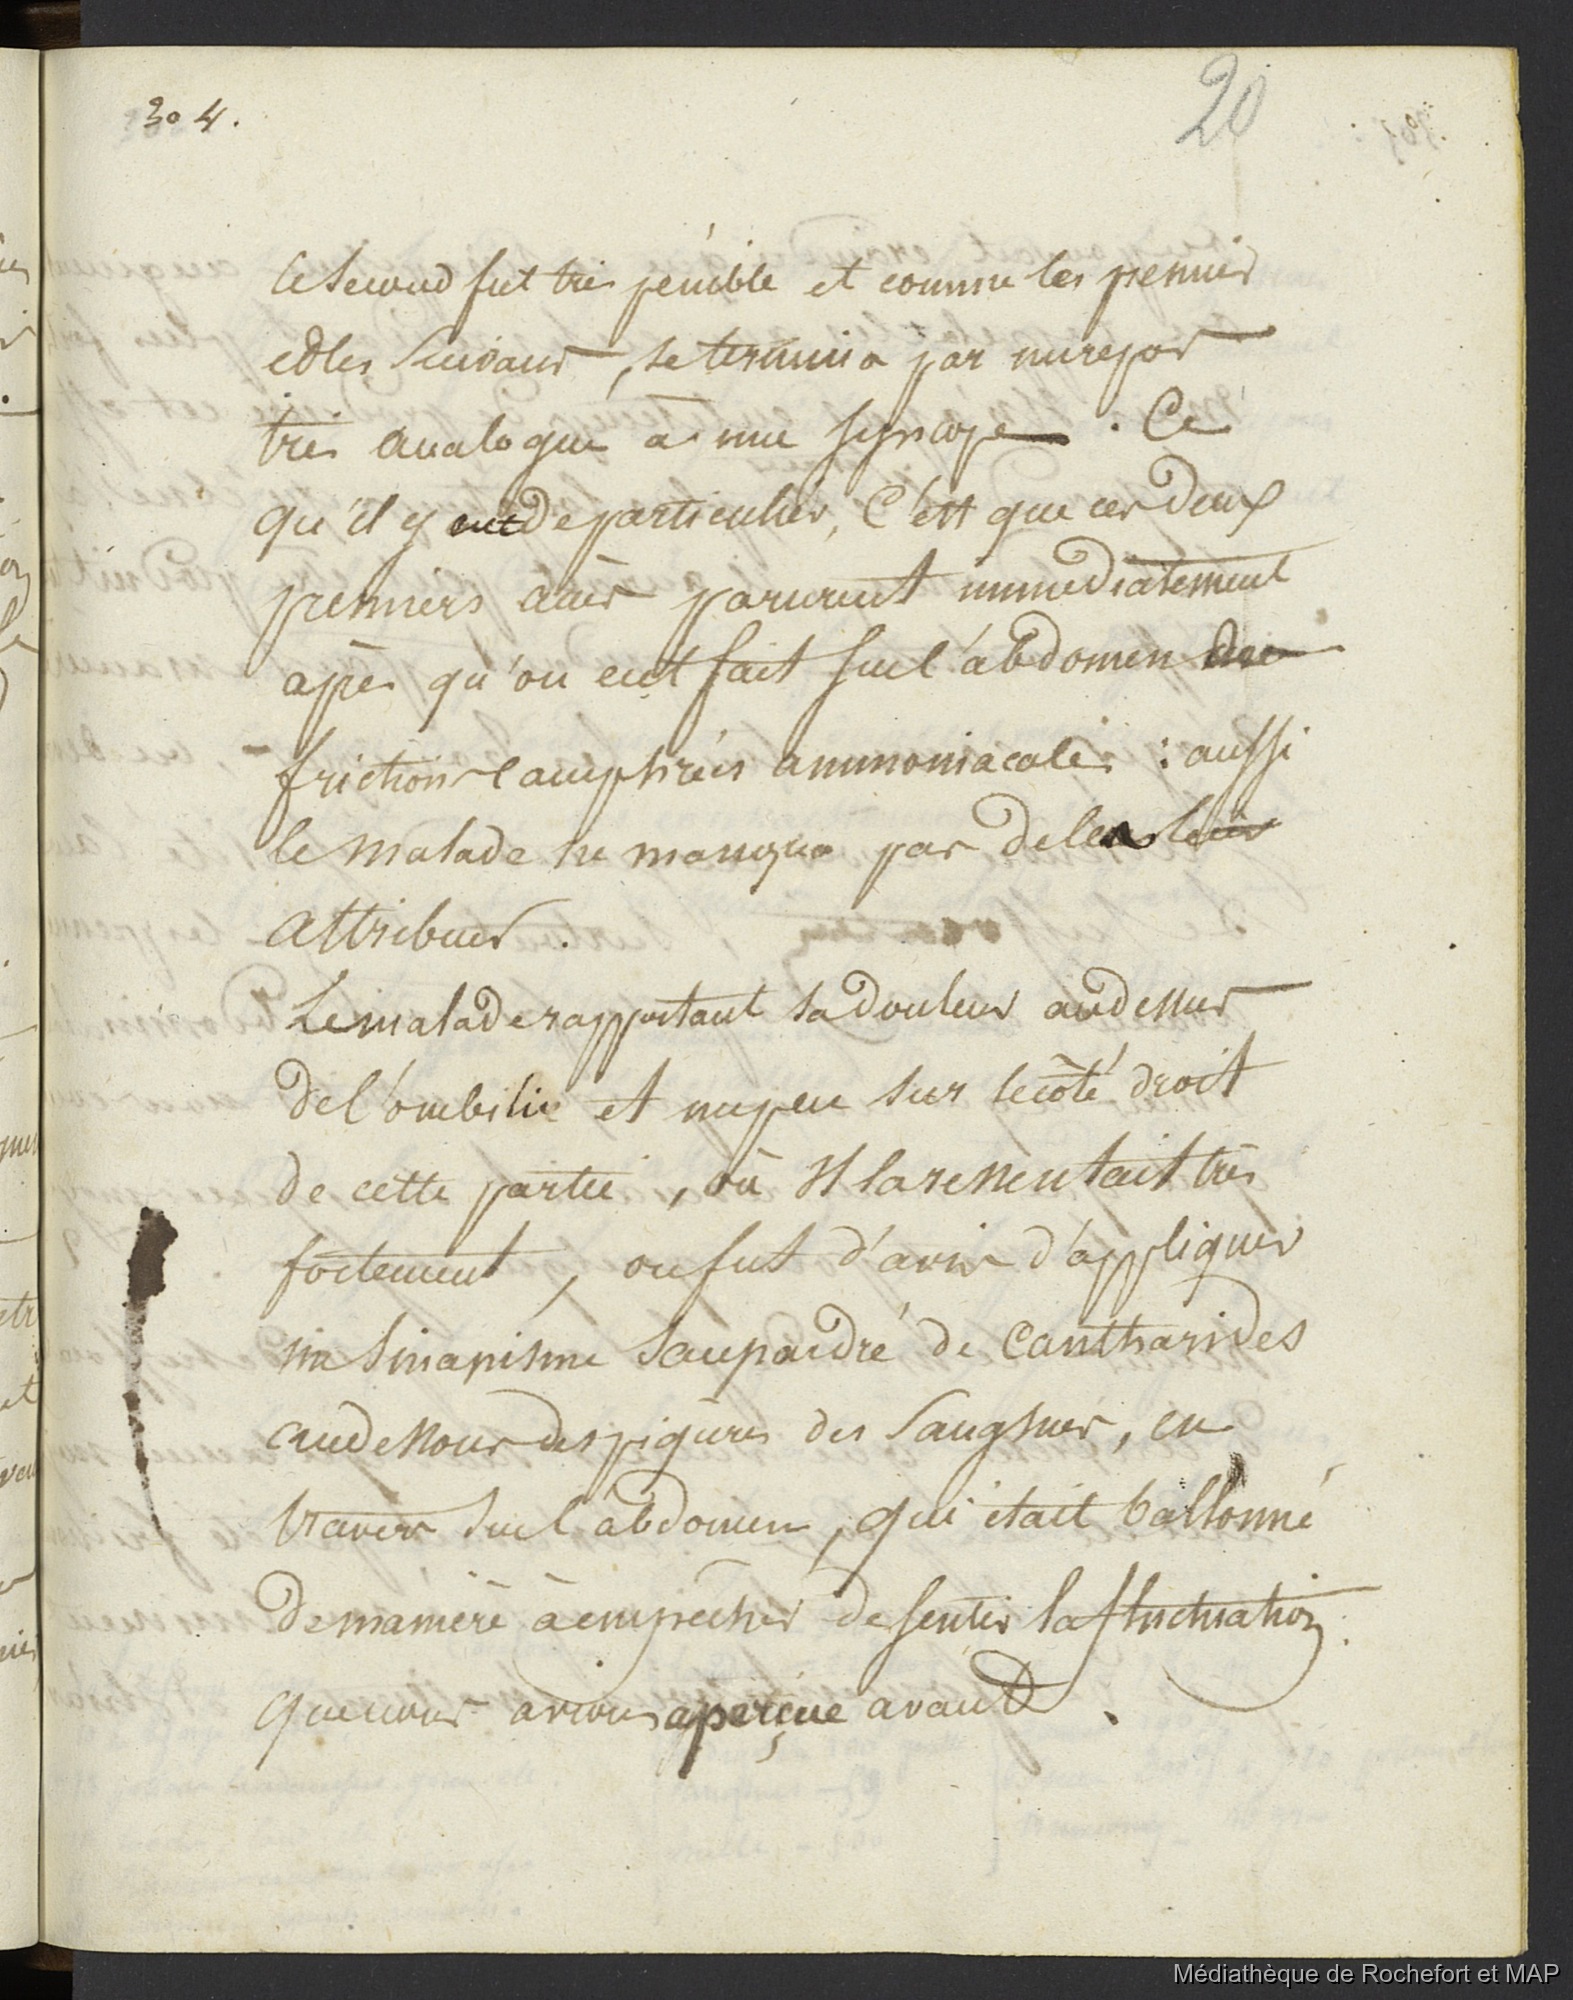 304.
20
le second fut très pénible et comme les premier
et les suivans, se termina par un repos
très analogue à une syncope. Ce
qu'il y eut de particulier, c'est que ces deux
premiers accès parurent immédiatement
après qu'on eut fait sur l'abdomen des
frictions camphrées ammoniacales : aussi
le malade ne manqua pas de les leur
attribuer.
Le malade rapportant sa douleur au dessus
de l'ombilic et un peu sur le côté droit
de cette partie, où il la ressentait très
fortement, on fut d'avis d'appliquer
un sinapisme saupoudré de cantharides
au dessous des piqûres des sangsues, en
travers sur l'abdomen, qui était ballonné
de manière à empêcher de sentir la fluctuation
que nous avions aperçue avant.
Médiathèque de Rochefort et MAP